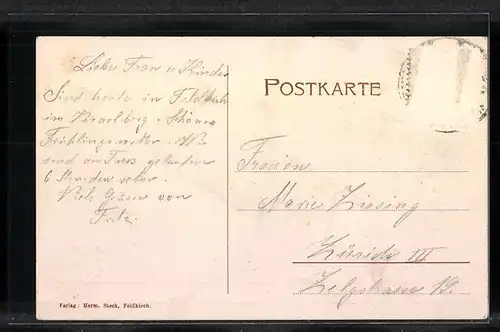 Liebe Frau u Kinder
Sind heute in Feldkirch
im Vorarlberg. Schönes
Frühlingswetter. Wir
sind zu Fuss gelaufen
6 Stunden
Viele Grüsse von
Fritz.
POSTKARTE
Marie
Zürich III
Zelgstrasse 19.
Verlag: Herm. Steck, Feldkirch.